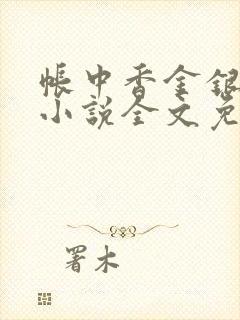 帳中香金銀
小說全文免
署木